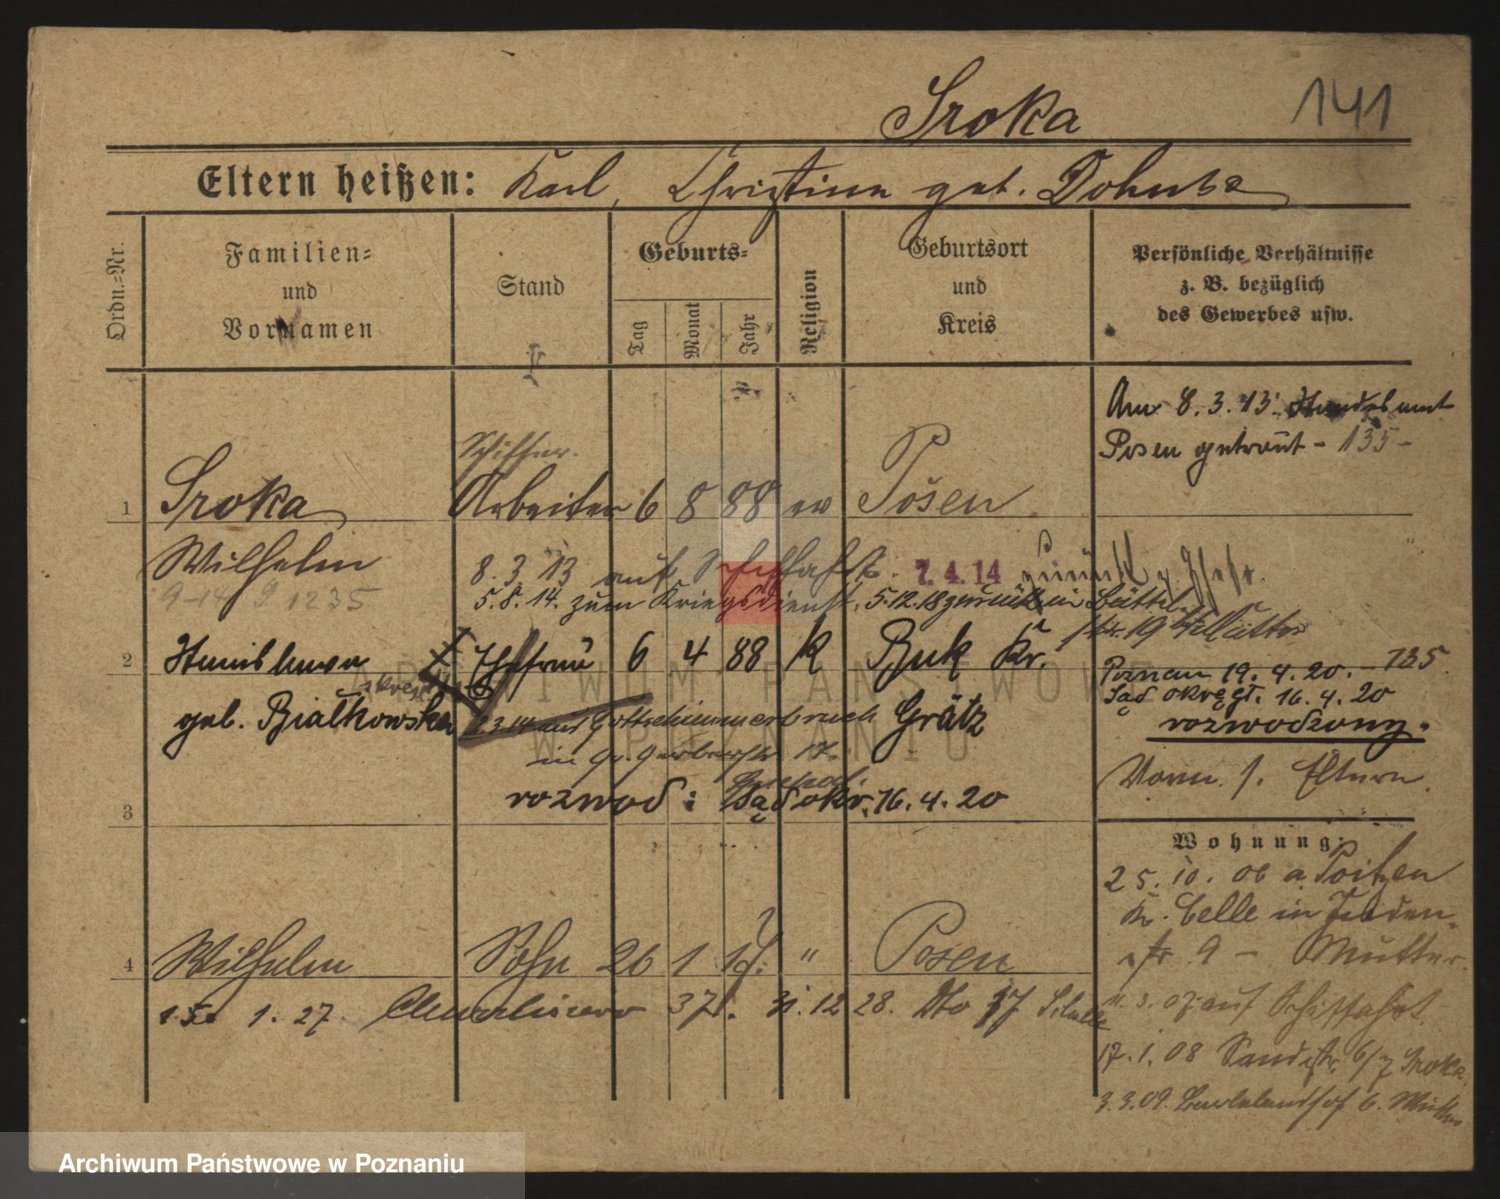 Sroka 141
Eltern heißen: Karl, Christine geb. Dohnke
Ordn.=Nr.
Familien=
und
Vornamen
Stand
Geburts=
Tag
Monat
Jahr
Religion
Geburtsort
und
Kreis
Persönliche Verhältnisse
z. B. bezüglich
des Gewerbes usw.
Am 8. 3. 13. Standesamt
Posen getraut - 135 -
Schiffer.
1 Sroka Arbeiter 6 8 88 ev Posen
Wilhelm
8. 3. 13 auf Schiffahrt - 7. 4. 14 zurück
9-14 9 1235
5. 8. 14. zum Kriegsdienst. 5.12.18 zurück in
2 Stanislawa Ehefrau 6 4 88 K Buk Kr.
geb. Białkowska Grätz
Poznań 19. 4. 20. - 135
Sąd okręgt. 16. 4. 20
rozwodzony.
in Gr. Gerberstr 17.
rozwod: Sąd okr. 16. 4. 20
Vorn. s. Eltern.
3
Wohnung:
25. 10. 06 a
Kr. Celle in
str 9 - Mutter.
4 Wilhelm Sohn 26 1 14. " Posen
15. 1. 27. 37. 31. 12 28.
07 auf Schiffahrt
17. 1. 08 Sandstr. 6/7 Sroka.
3. 3. 09.
ARCHIWUM PAŃSTWOWE
W POZNANIU
Archiwum Państwowe w Poznaniu